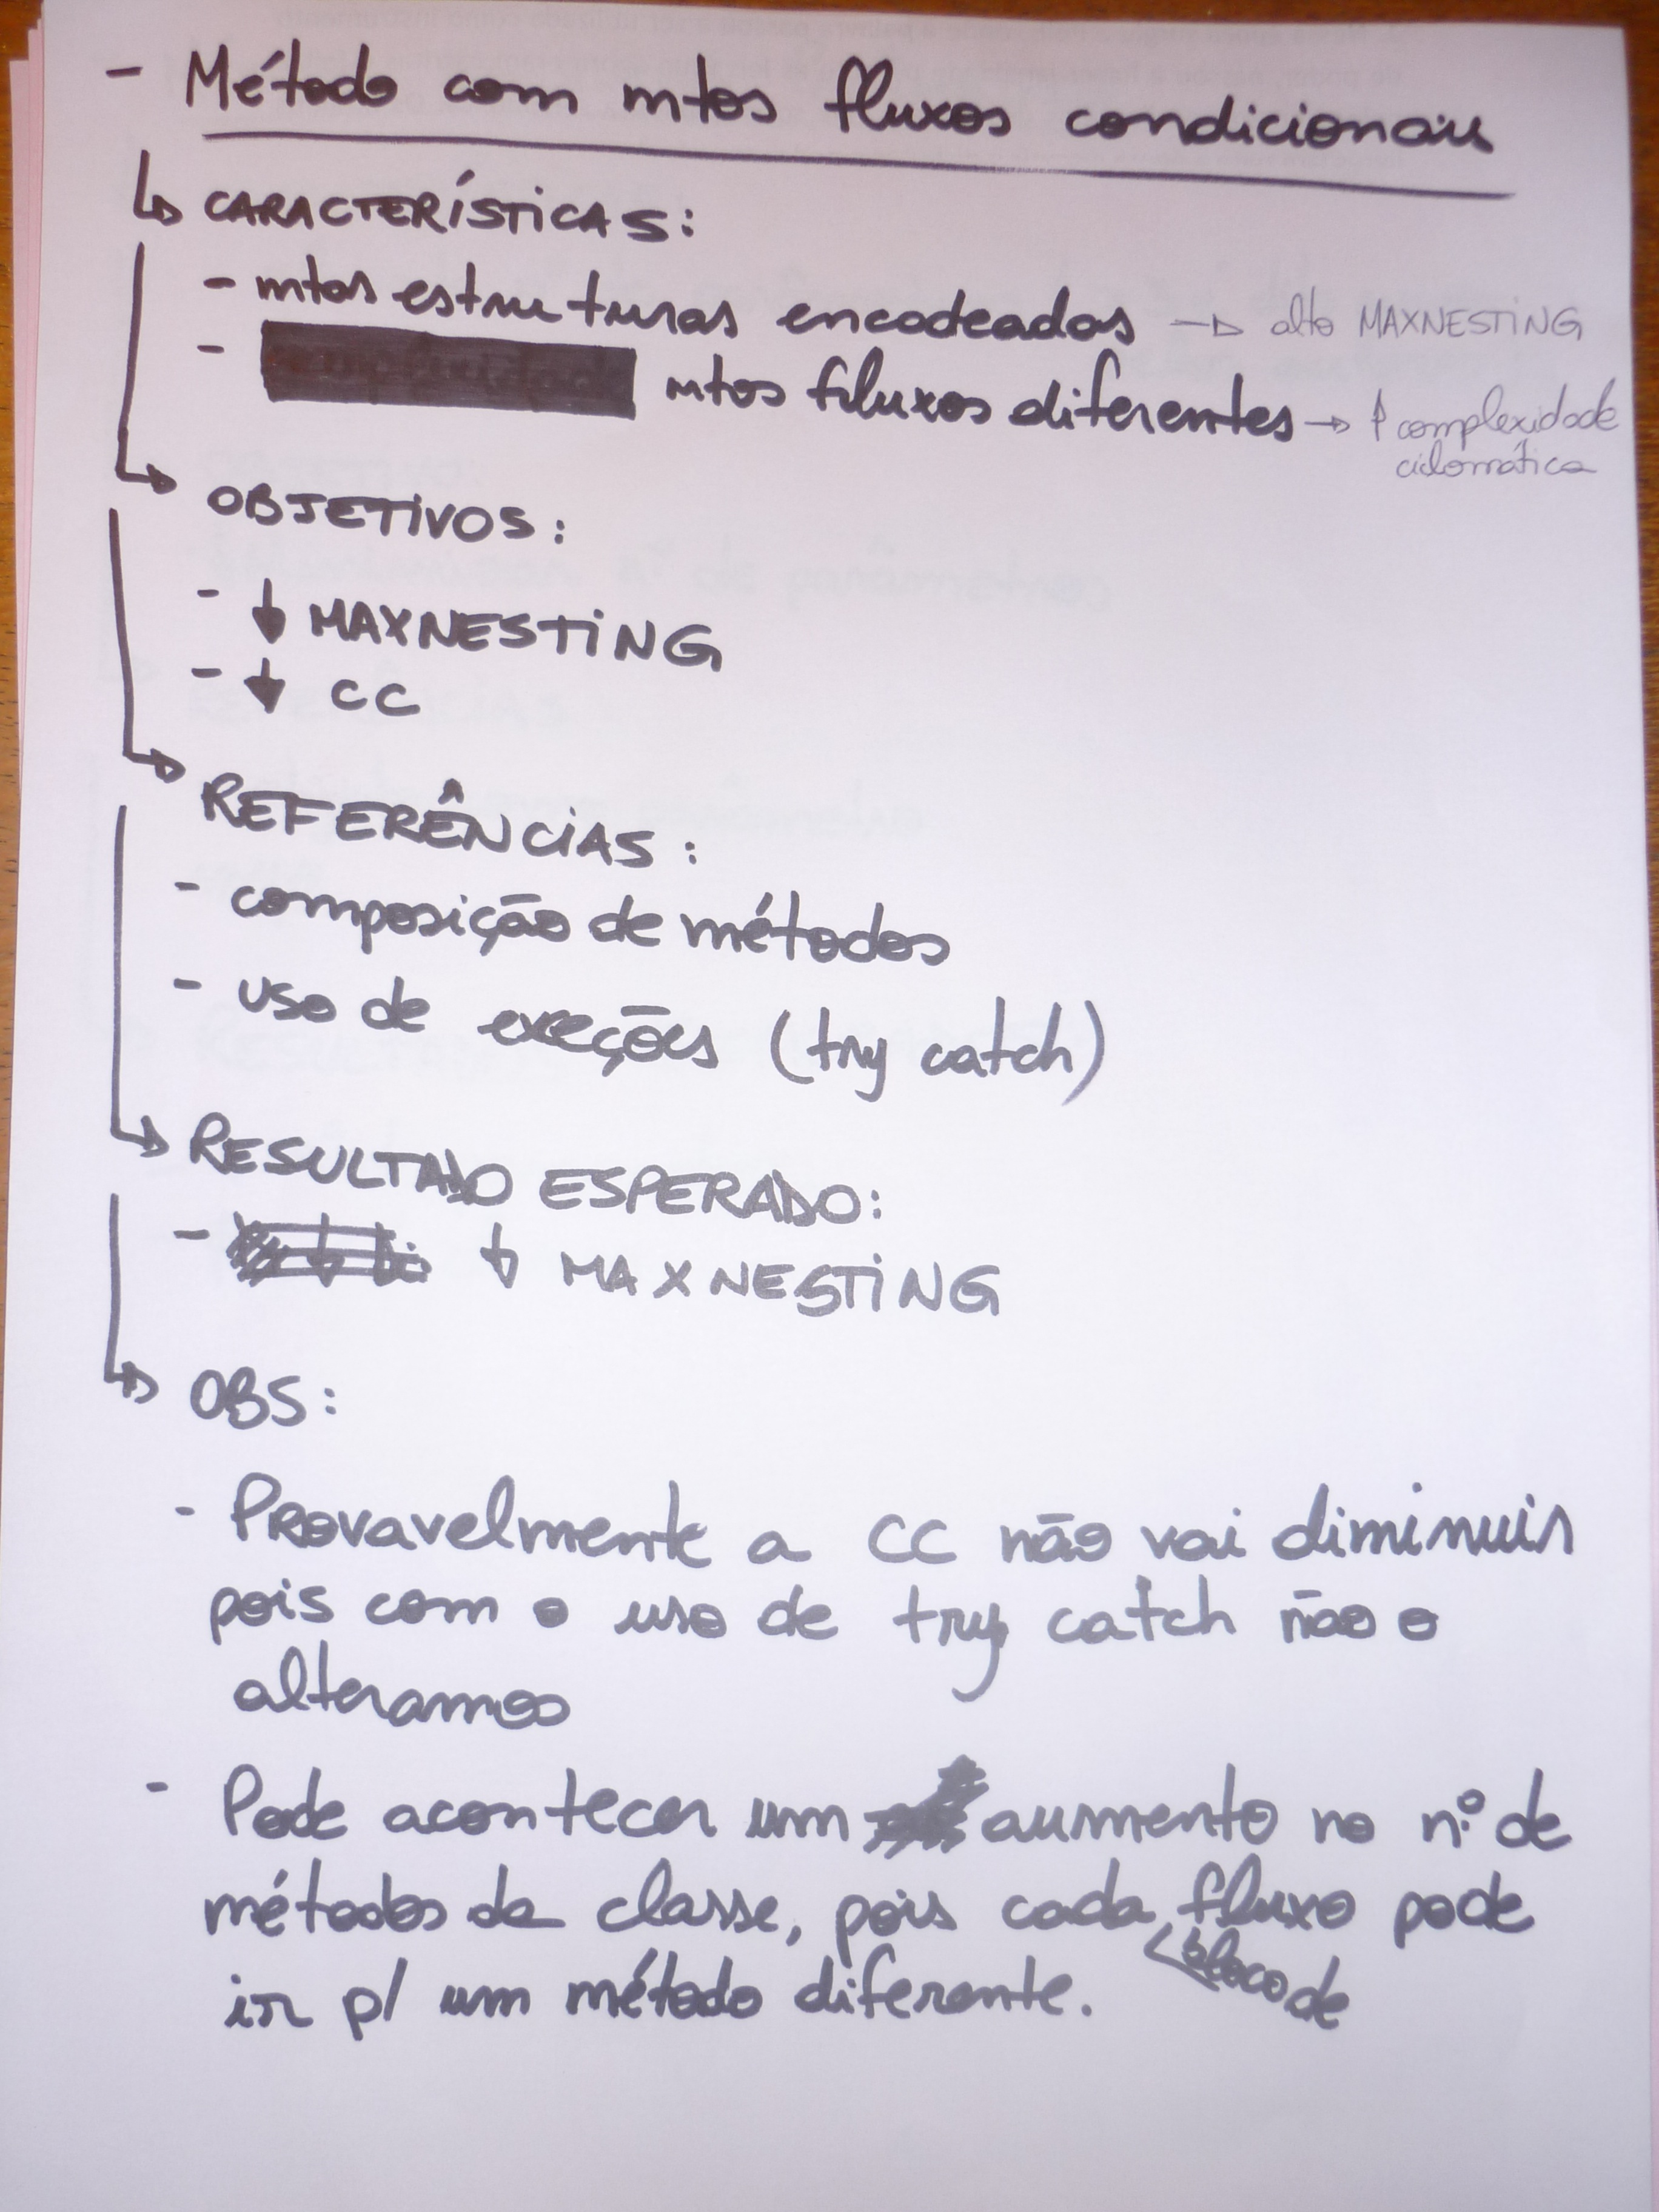 - Método com mtos fluxos condicionais
↳ CARACTERÍSTICAS:
- mtas estruturas encadeadas → alto MAXNESTING
- mtos fluxos diferentes → ↑ complexidade
ciclomática
↳ OBJETIVOS:
- ↓ MAXNESTING
- ↓ CC
↳ REFERÊNCIAS:
- composição de métodos
- uso de exeções (try catch)
↳ RESULTADO ESPERADO:
- ↓ MAXNESTING
↳ OBS:
- Provavelmente a CC não vai diminuir
pois com o uso de try catch não o
alteramos
- Pode acontecer um aumento no nº de
métodos da classe, pois cada fluxo pode
< bloco de
ir p/ um método diferente.